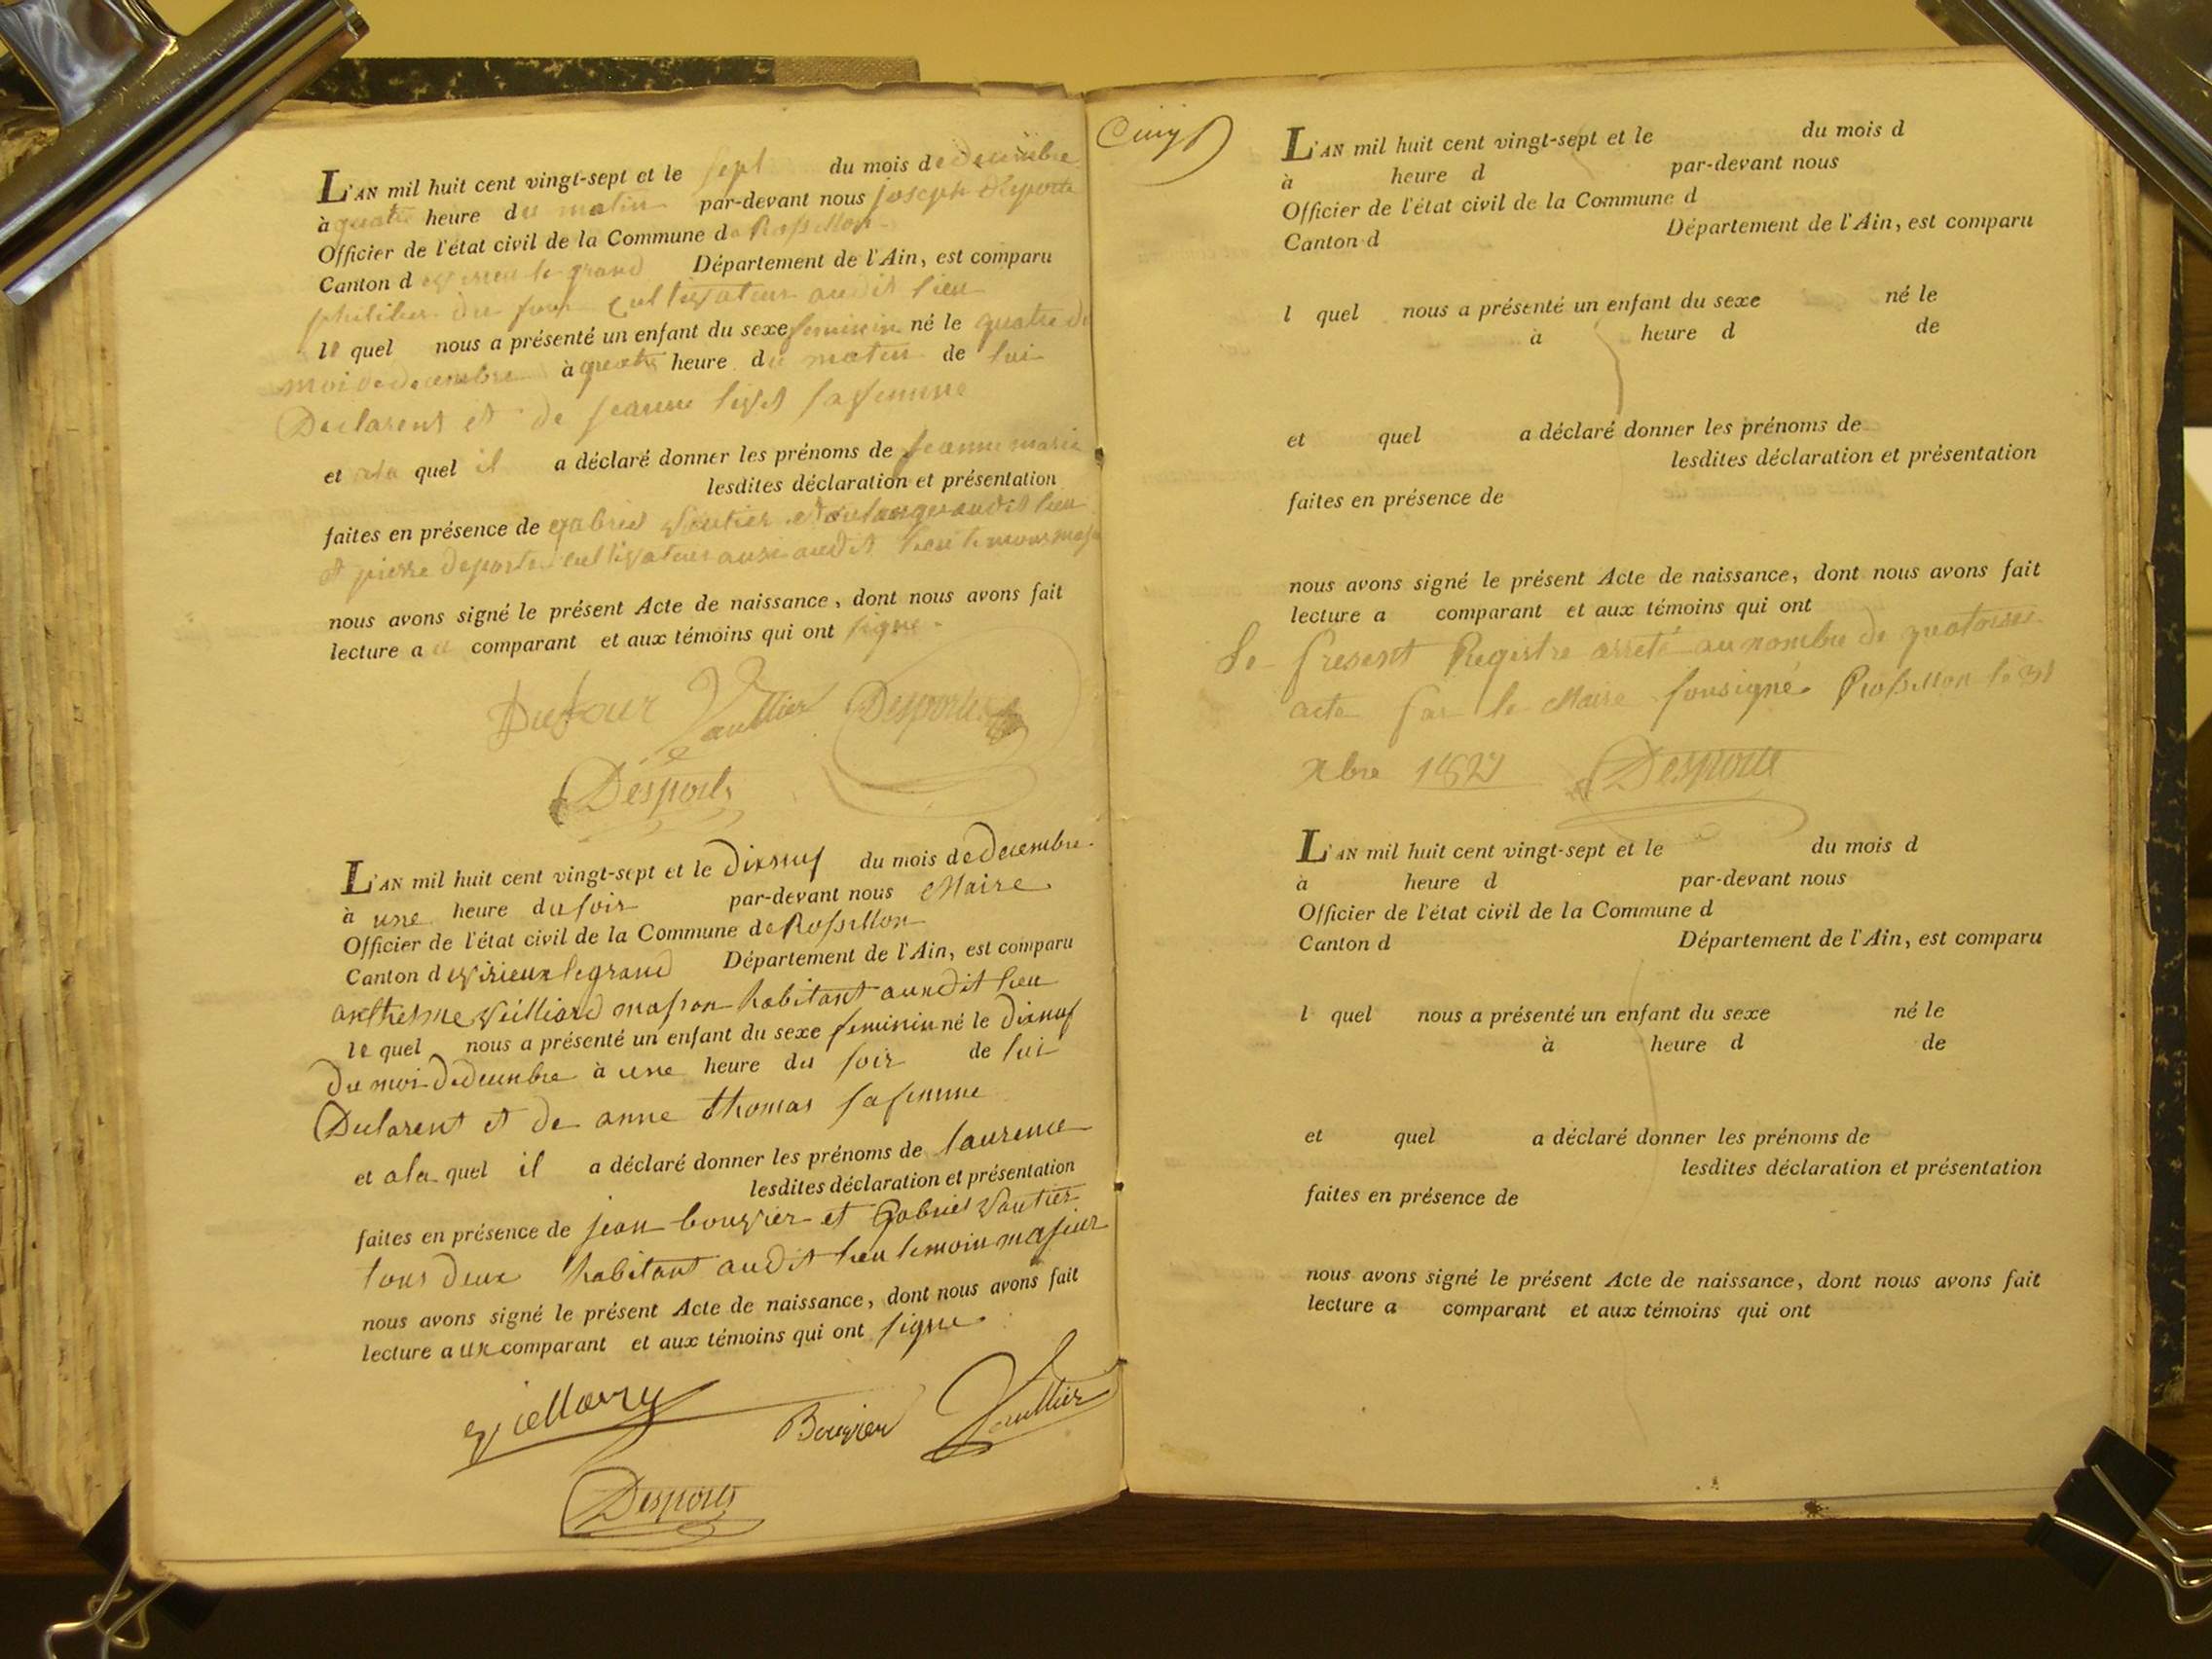 L'AN mil huit cent vingt-sept et le sept du mois de decembre
à quatre heure du matin par-devant nous joseph Desporte
Officier de l'état civil de la Commune de Rossillon
Canton de virieu le grand Département de l'Ain, est comparu
du four cultivateur audit lieu
le quel nous a présenté un enfant du sexe feminin né le quatre du
moi de decembre à quatre heure du matin de lui
Declarent et de jeanne sa femme
et a la quel il a déclaré donner les prénoms de jeanne marie
lesdites déclaration et présentation
faites en présence de gabriel Vautier audit lieu
et pierre deporte cultivateur ausi audit lieu temoins
nous avons signé le présent Acte de naissance, dont nous avons fait
lecture a comparant et aux témoins qui ont signe.
Dufour Vaulttier Desporte
Desporte
L'AN mil huit cent vingt-sept et le dixneuf du mois de decembre.
à une heure du soir par-devant nous Maire
Officier de l'état civil de la Commune de Rossillon
Canton de virieux le grand Département de l'Ain, est comparu
anthelme veilliard masson habitant audit lieu
le quel nous a présenté un enfant du sexe feminin né le dixneuf
du moi de decembre à une heure du soir de lui
Declarent et de anne thomas sa femme
et a la quel il a déclaré donner les prénoms de laurence
lesdites déclaration et présentation
faites en présence de jean bouvier et Gabriel Vautier
tous deux habitant audit lieu temoin majeur
nous avons signé le présent Acte de naissance, dont nous avons fait
lecture a ux comparant et aux témoins qui ont signe.
Bouvier Vaulttier
Desporte
L'AN mil huit cent vingt-sept et le du mois d
à heure d par-devant nous
Officier de l'état civil de la Commune d
Canton d Département de l'Ain, est comparu
l quel nous a présenté un enfant du sexe né le
à heure d de
et quel a déclaré donner les prénoms de
lesdites déclaration et présentation
faites en présence de
nous avons signé le présent Acte de naissance, dont nous avons fait
lecture a comparant et aux témoins qui ont
Le present Registre arreté au nombre de quatorse
acte par le Maire sousigné. Rossillon le 31
xbre 1827 Desporte
L'AN mil huit cent vingt-sept et le du mois d
à heure d par-devant nous
Officier de l'état civil de la Commune d
Canton d Département de l'Ain, est comparu
l quel nous a présenté un enfant du sexe né le
à heure d de
et quel a déclaré donner les prénoms de
lesdites déclaration et présentation
faites en présence de
nous avons signé le présent Acte de naissance, dont nous avons fait
lecture a comparant et aux témoins qui ont